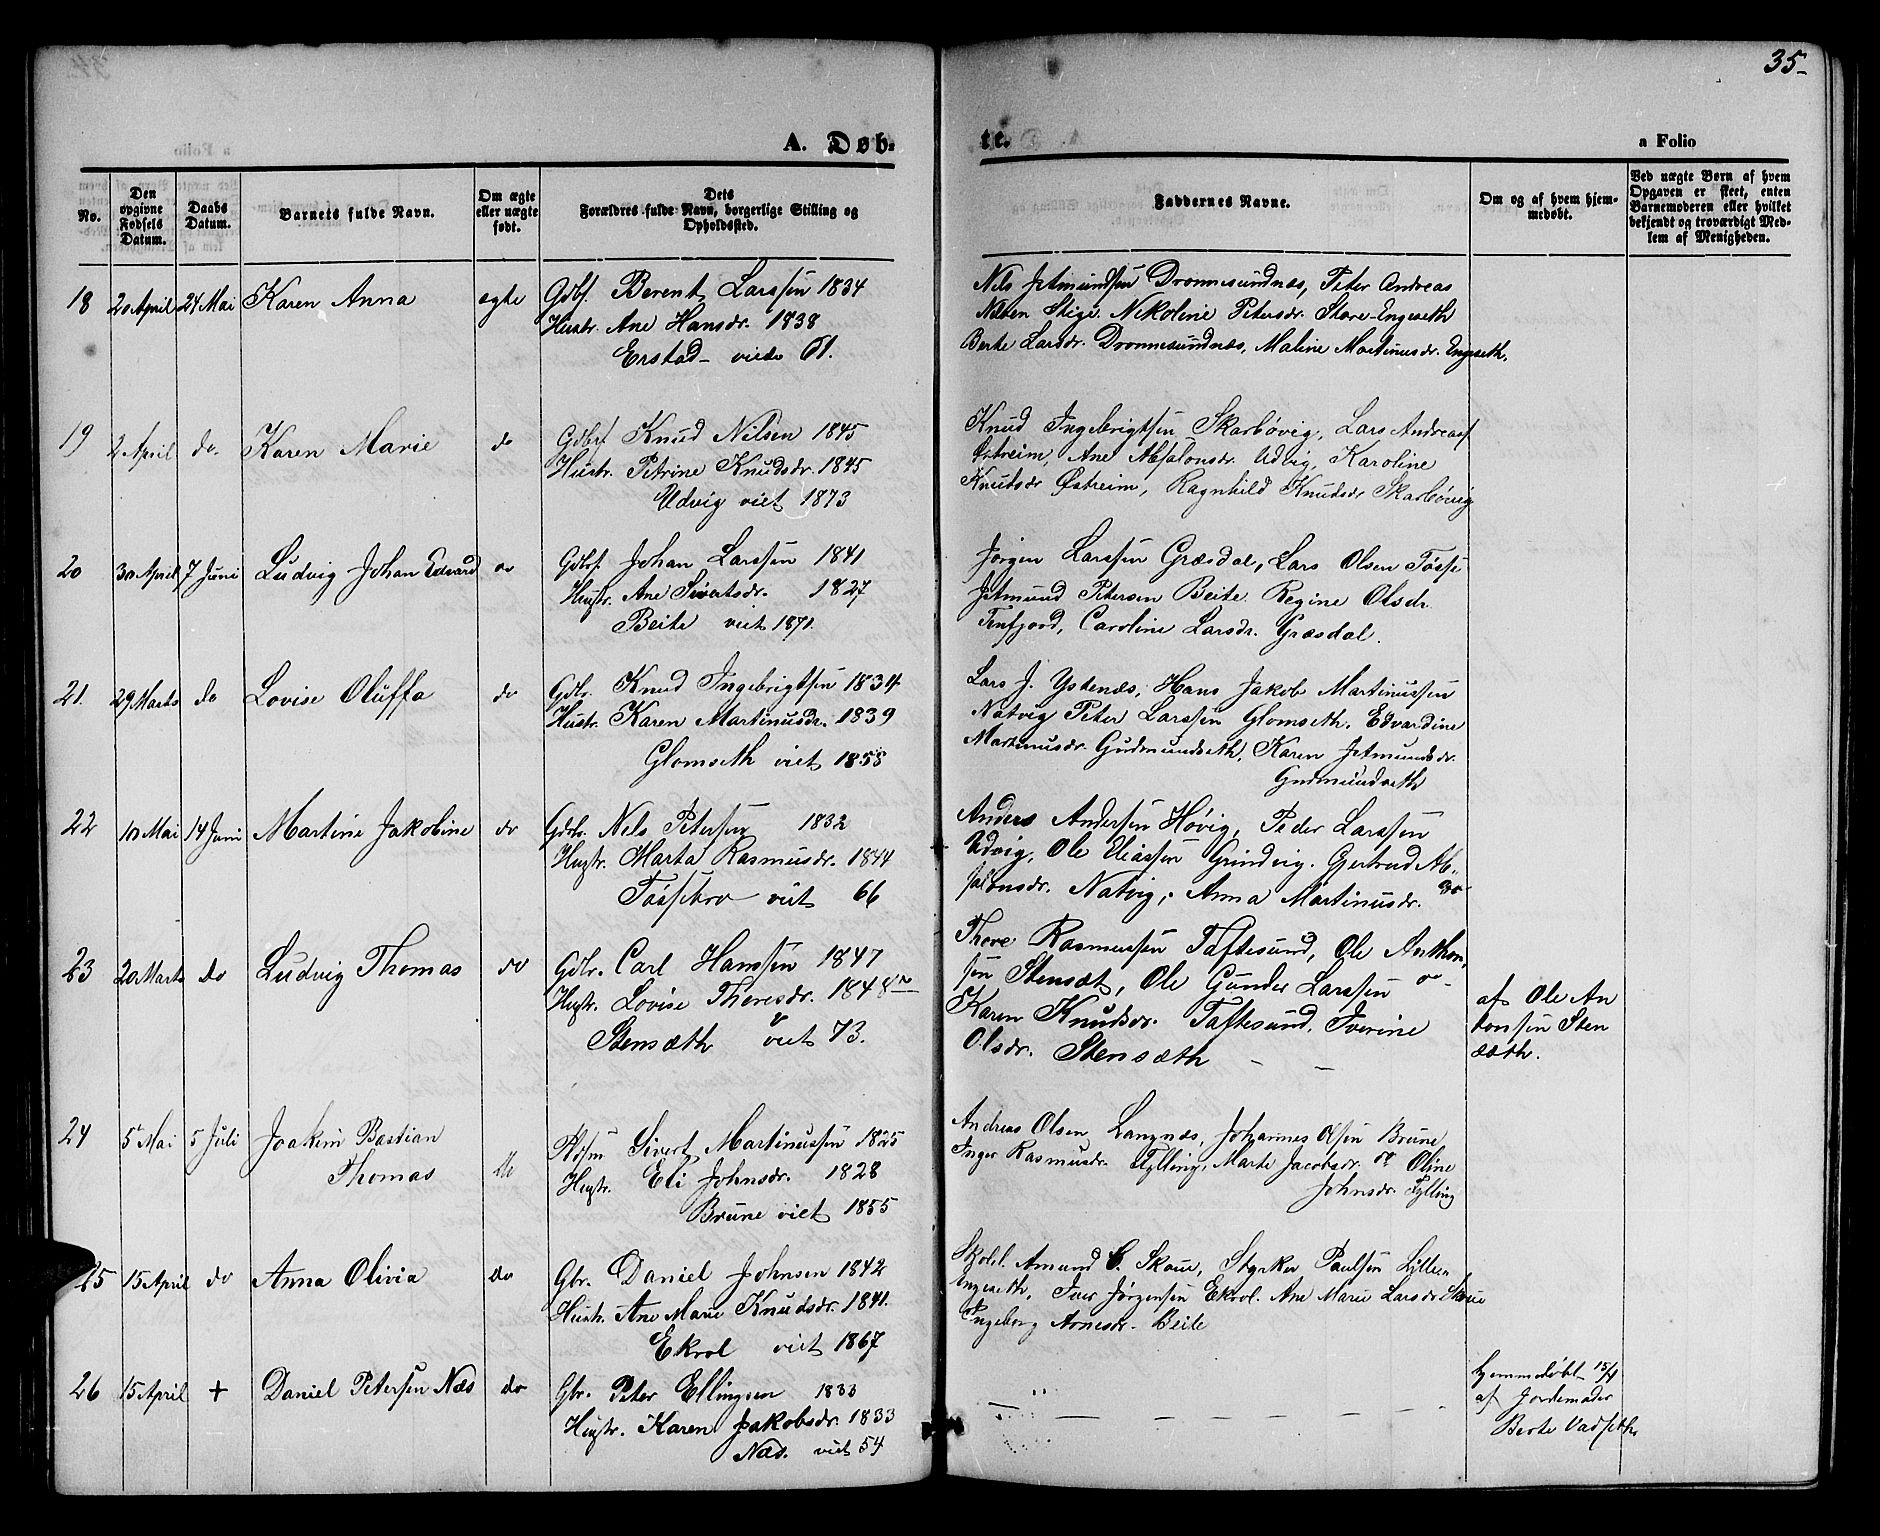 35-
A. Døb-
te.
a Folio
No.
Den opgivne Fødsels Datum.
Daabs Datum.
Barnets fulde Navn.
Om ægte eller uægte født.
Dets Forældres fulde Navn, borgerlige Stilling og Opholdssted.
Faddernes Navne.
Om og af hvem hjemmedøbt.
Ved uægte Børn af hvem Opgaven er skeet, enten Barnemoderen eller hvilket bekjendt og troværdigt Medlem af Menigheden.
18 20 April 24 Mai Karen Anna ægte Gdbf. Berent Larssen 1834
Hustr. Ane Hansdr. 1838
Erstad - viede 61.
Nels Jetmundsen Dronnesundnæs, Peter Andreas
Nelsen Stige. Nikoline Petersdr. Store-Engeseth
Berte Larsdr. Dronnesundnæs, Maline Martinusdr. Engeseth.
19 2 April do. Karen Marie do Gdbrf Knud Nilsen 1845
Hustr. Petrine Knudsdr. 1845
Udvig viet 1873
Knud Ingebrigtsen Skarbøvig, Lars Andreasf
Østreim, Ane Absalonsdr. Udvig, Karoline
Knutsdr Østreim, Ragnhild Knudsdr Skarbøvig
20 30 April 7 Juni Ludvig Johan Edvard do Gdbf. Johan Larssen 1841
Hustr. Ane Sivertsdr. 1827
Beite viet 1871.
Jørgen Larssen Græsdal, Lars Olsen Tøsse
Jetmund Petersen Beite. Regine Olsdr.
Tenfjord, Caroline Larsdr. Græsdal.
21. 29 Marts do Lovise Oluffa do Gdbr. Knud Ingebrigtsen 1834
Hustr. Karen Martinusdr. 1839
Glomseth viet 1858
Lars J. Ystenæs, Hans Jakob Martinussen
Natvig Peter Larssen Glomseth. Edvardine
Martinusdr. Gudmundseth, Karen Jetmundsdr.
Gudmundseth
22 10 Mai 14 Juni Martine Jakobine do Gdbr. Nels Petersen 1832
Hustr. Marta Rasmusdr. 1844
Tøssebro viet 66
Anders Andersen Høvig, Peder Larssen
Udvig, Ole Eliassen Grindvig. Gjertrud Ab-
salonsdr. Natvig, Anna Martinusdr. do
23 20 Marts do Ludvig Thomas do Gdbr. Carl Hanssen 1847
Hustr. Lovise Theresdr. 1848
Stensæth viet 73.
Thore Rasmussen Taftesund, Ole Anthon-
sen Stensæt, Ole Gunder Larssen do -
Karen Knudsdr. Taftesund, Iverine
Olsdr. Stensæth - -
af Ole An
tonsen Sten
sæth.
24 5 Mai 5 Juli Joakim Bastian
Thomas
do Sivert Martinussen 1825
Hustr. Eli Johnsdr. 1828
Brune viet 1855
Andreas Olsen Langnæs, Johannes Olsen Brune
Inger Rasmusdr. Fylling, Marte Jacobsdr. do Oline
Johnsdr. Fylling
25 15 April do Anna Olivia do Gbr. Daniel Johnsen 1842
Hustr. Ane Marie Knudsdr. 1841.
Ekrol viet 1867
Skoll. Amund C. Skoue, Styrker Paulsen Lille-
Engeseth, Iver Jørgensen Ekrol. Ane Marie Larsdr Skoue
Ingeborg Arnesdr. Beite
26 15 April + Daniel Petersen Næs do Gbr. Peter Ellingsen 1833
Hustr. Karen Jakobsdr. 1833
Næs. viet 54
hjemmedøbt 15/4
af Jordemoder
Berte Vadseth